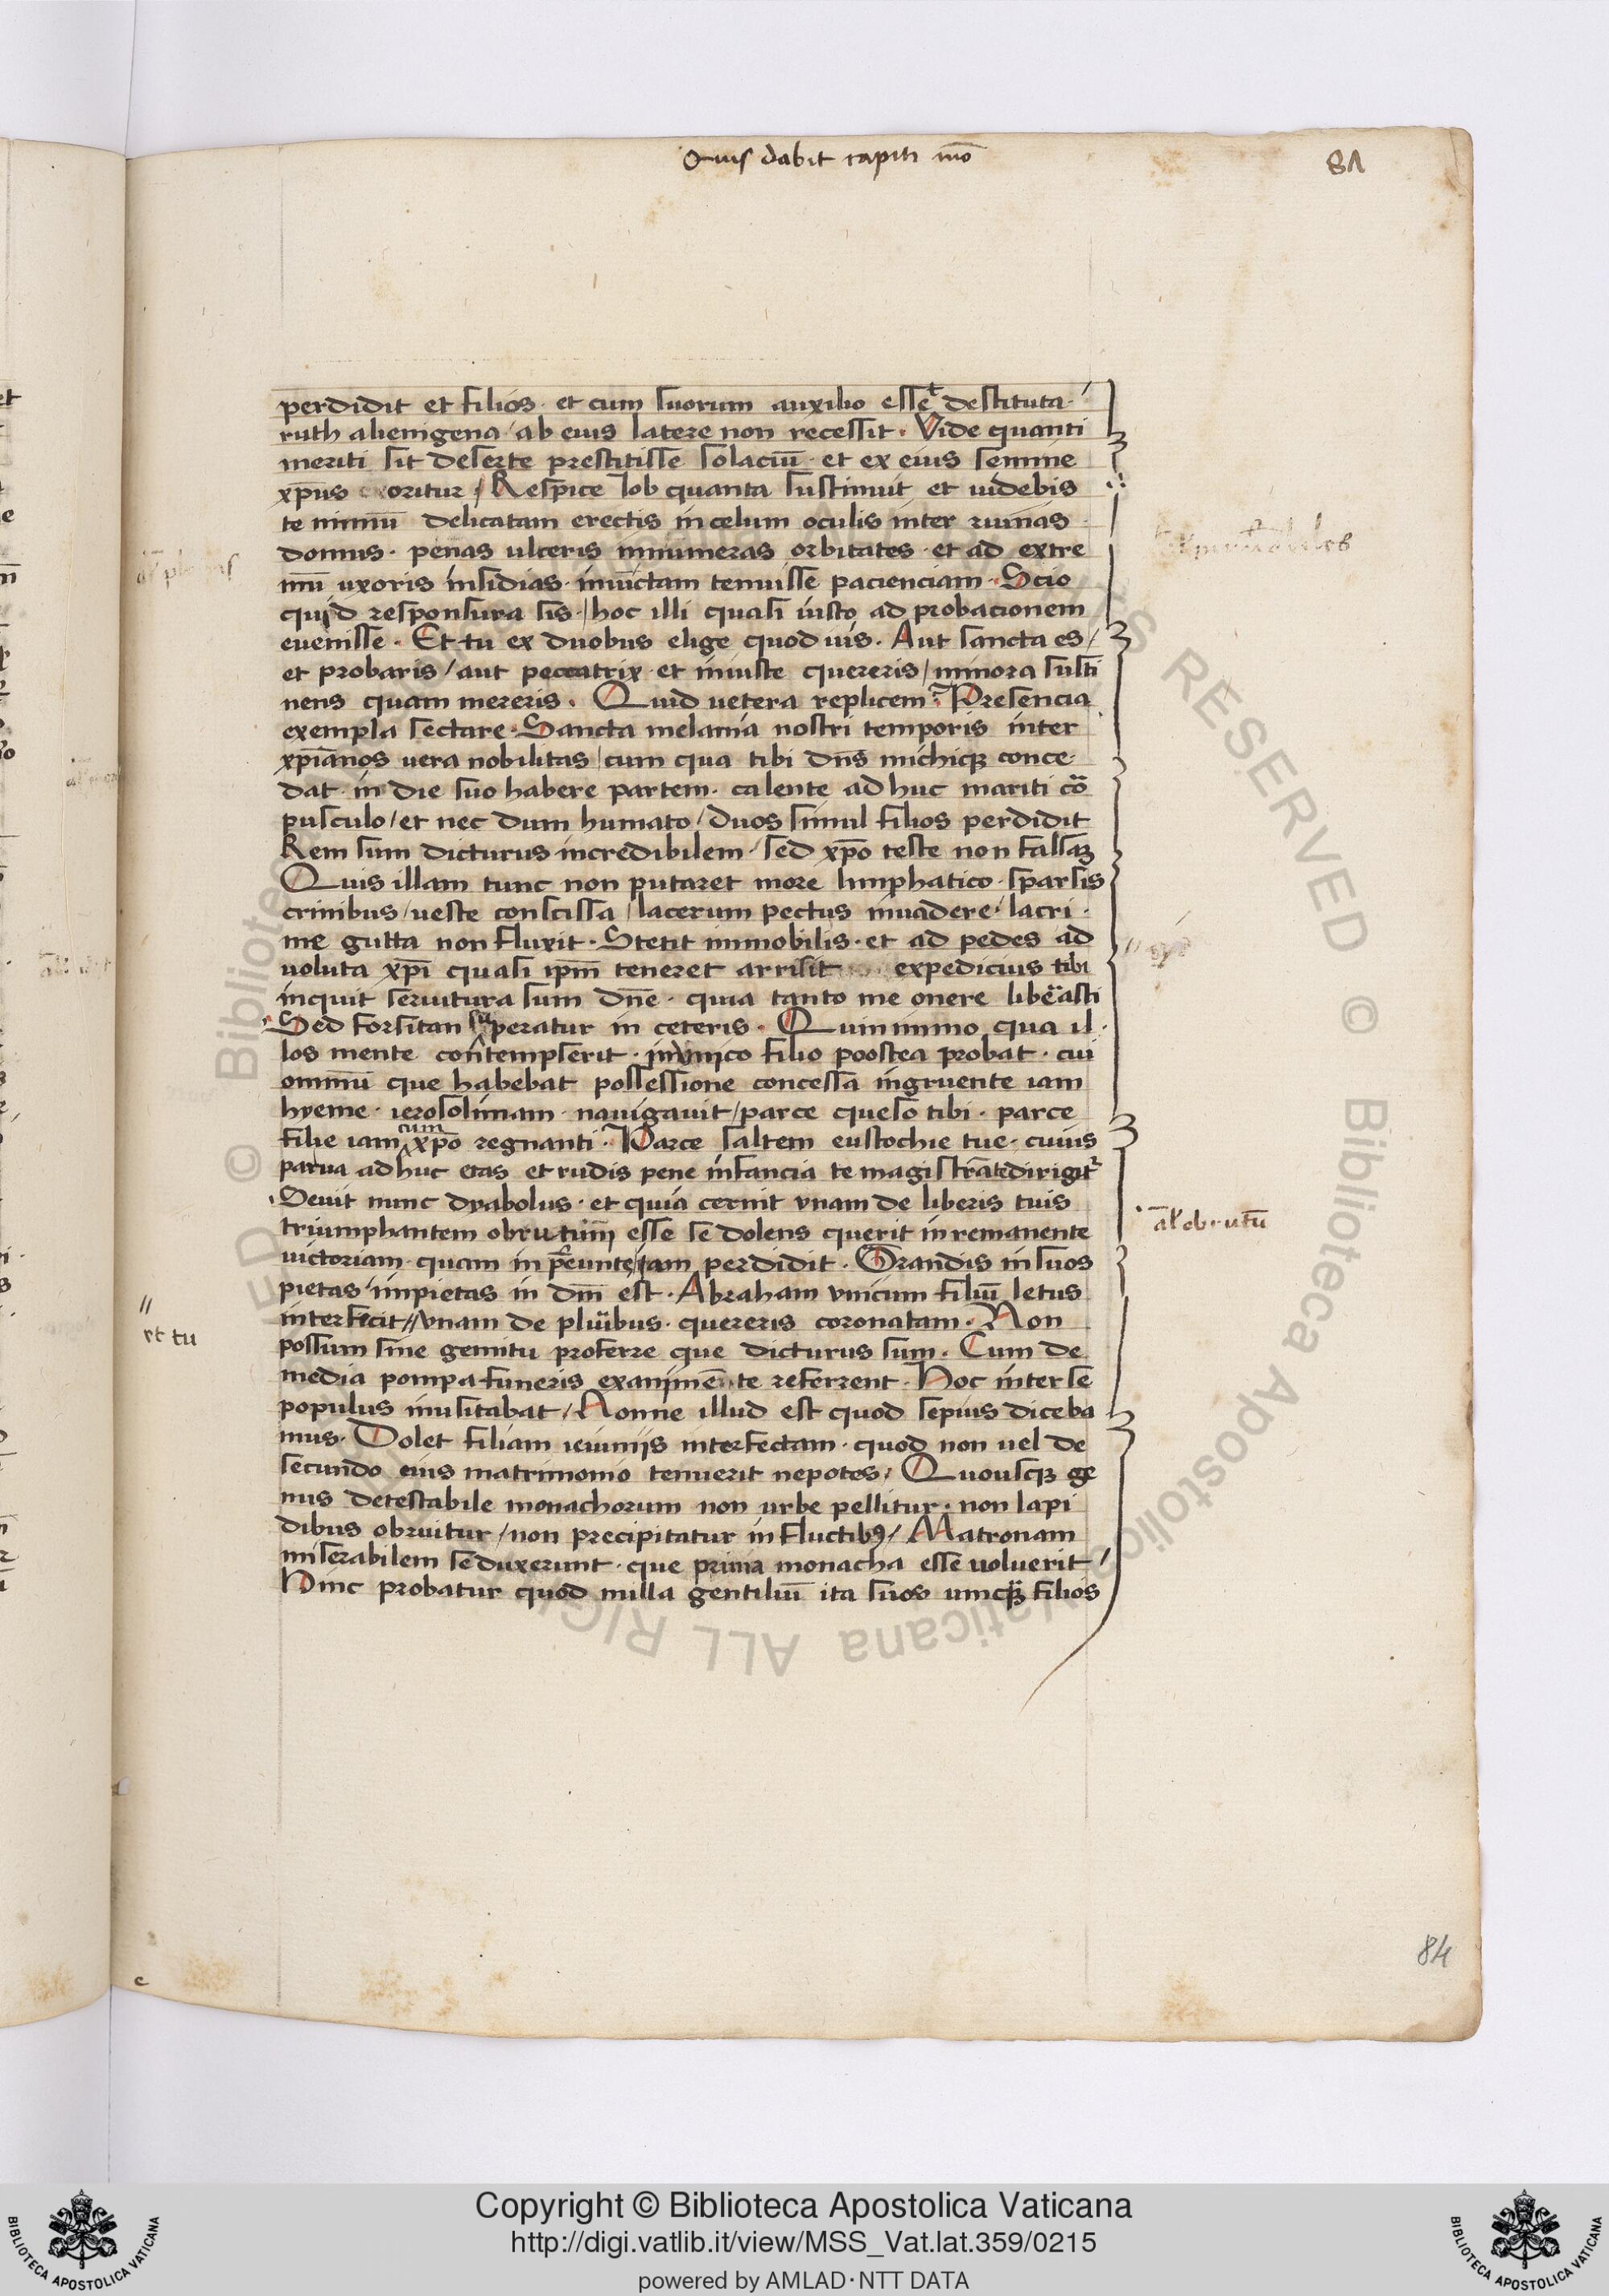 Quis dabit capiti mō
81
perdidit et filios · et cum suorum auxilio essēt destituta ·
ruth alienigena / ab eius latere non recessit · Vide quanti
meriti sit deserte prestitisse solaciū · et ex eius semine
xp̄us exoritur / Respice Iob quanta sustinuit et uidebis
te nimiū delicatam erectis in celum oculis inter ruinas
domus · penas ulceris innumeras orbitates · et ad extre
mū uxoris insidias · inuictam tenuisse pacienciam · Scio
quid responsura sis · / hoc illi quasi iusto ad probacionem
euenisse · Et tu ex duobus elige quod uis · Aut sancta es /
et probaris / aut peccatrix et iniuste quereris / minora susti
nens quam mereris · Quid uetera replicem · Presencia
exempla sectare · Sancta melania nostri temporis inter
xp̄ianos uera nobilitas / cum qua tibi dn̄s michiqꝫ conce
dat in die suo habere partem · calente adhuc mariti cor
pusculo / et nec dum humato / duos simul filios perdidit
Rem sum dicturus incredibilem / sed xp̄o teste non falsaꝫ
Quis illam tunc non putaret more limphatico · sparsis
crinibus / ueste conscissa / lacerum pectus inuadere / lacri ·
me gutta non fluxit · Stetit immobilis · et ad pedes ad
uoluta xp̄i quasi ip̄m teneret arrisit expedicius tibi
inquit seruitura sum dn̄e · quia tanto me onere liberasti
Sed forsitan superatur in ceteris · Quinimmo qua il ·
los mente contempserit · in unico filio poostea probat · cui
omniū que habebat possessione concessa ingruente iam
hyeme · ierosolimam · nauigauit / parce queso tibi · parce
filie iam cum xp̄o regnanti · Parce saltem eustochie tue · cuius
parua adhuc etas et rudis pene infancia te magistrāte dirigitr
Seuit nunc dyabolus · et quia cernit vnam de liberis tuis
triumphantem obrutum esse se dolens querit in remanente
al obrutū
uictoriam quam in p̄eunte iam perdidit · Grandis in suos
pietas / impietas in dm̄ est · Abraham vnicum filiū letus
interficit // vnam de pluribus · quereris coronatam · Non
//
et tu
possum sine gemitu proferre que dicturus sum · Cum de
media pompa funeris exanimē te referrent · Hoc inter se
populus musitabat / Nonne illud est quod sepius diceba
mus · Dolet filiam ieiuniis interfectam · quod non uel de
secundo eius matrimonio tenuerit nepotes / Quousqꝫ ge
nus detestabile monachorum non urbe pellitur · non lapi
dibus obruitur / non precipitatur in fluctibꝰ / Matronam
miserabilem seduxerunt · que prima monacha esse uoluerit /
Hinc probatur quod nulla gentiliū ita suos umqꝫ filios
84
c
© Biblioteca Apostolica Vaticana ALL RIGHTS RESERVED © Biblioteca Apostolica Vaticana ALL RIGHTS RESERVED
Copyright © Biblioteca Apostolica Vaticana
http://digi.vatlib.it/view/MSS_Vat.lat.359/0215
powered by AMLAD·NTT DATA
BIBLIOTECA APOSTOLICA VATICANA
BIBLIOTECA APOSTOLICA VATICANA